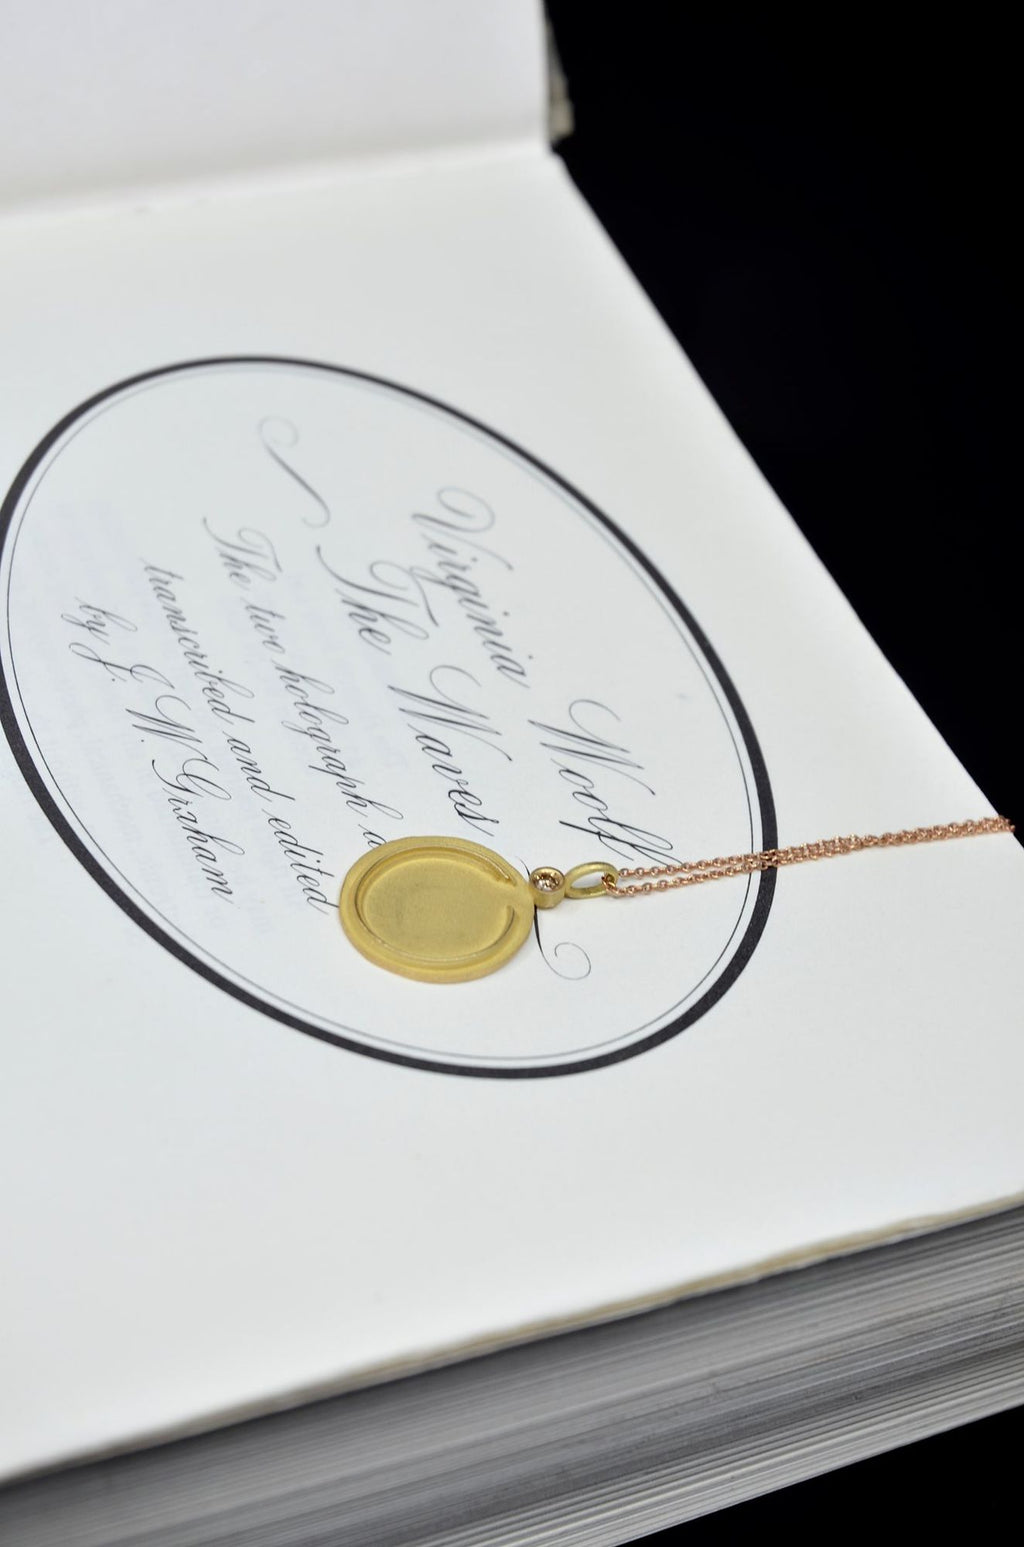 Virginia Woolf
The Waves
The two holograph
transcribed and edited
by J. W. Graham